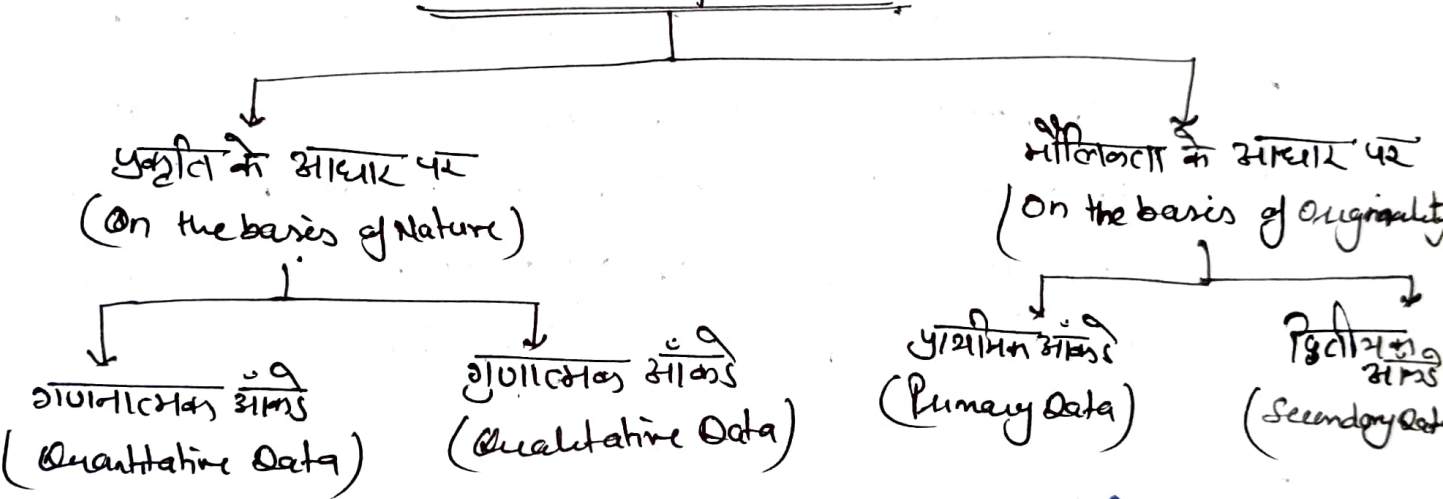 प्रकृति के आधार पर
(On the basis of Nature)
मौलिकता के आधार पर
(On the basis of Originality
गणनात्मक आँकडे
(Quanttative Data)
गुणात्मक आँकडे
(Qualitative Data)
प्राथमिक आँकडे
(Primary Data)
द्वितीयक आँकडे
(Secondary Dat